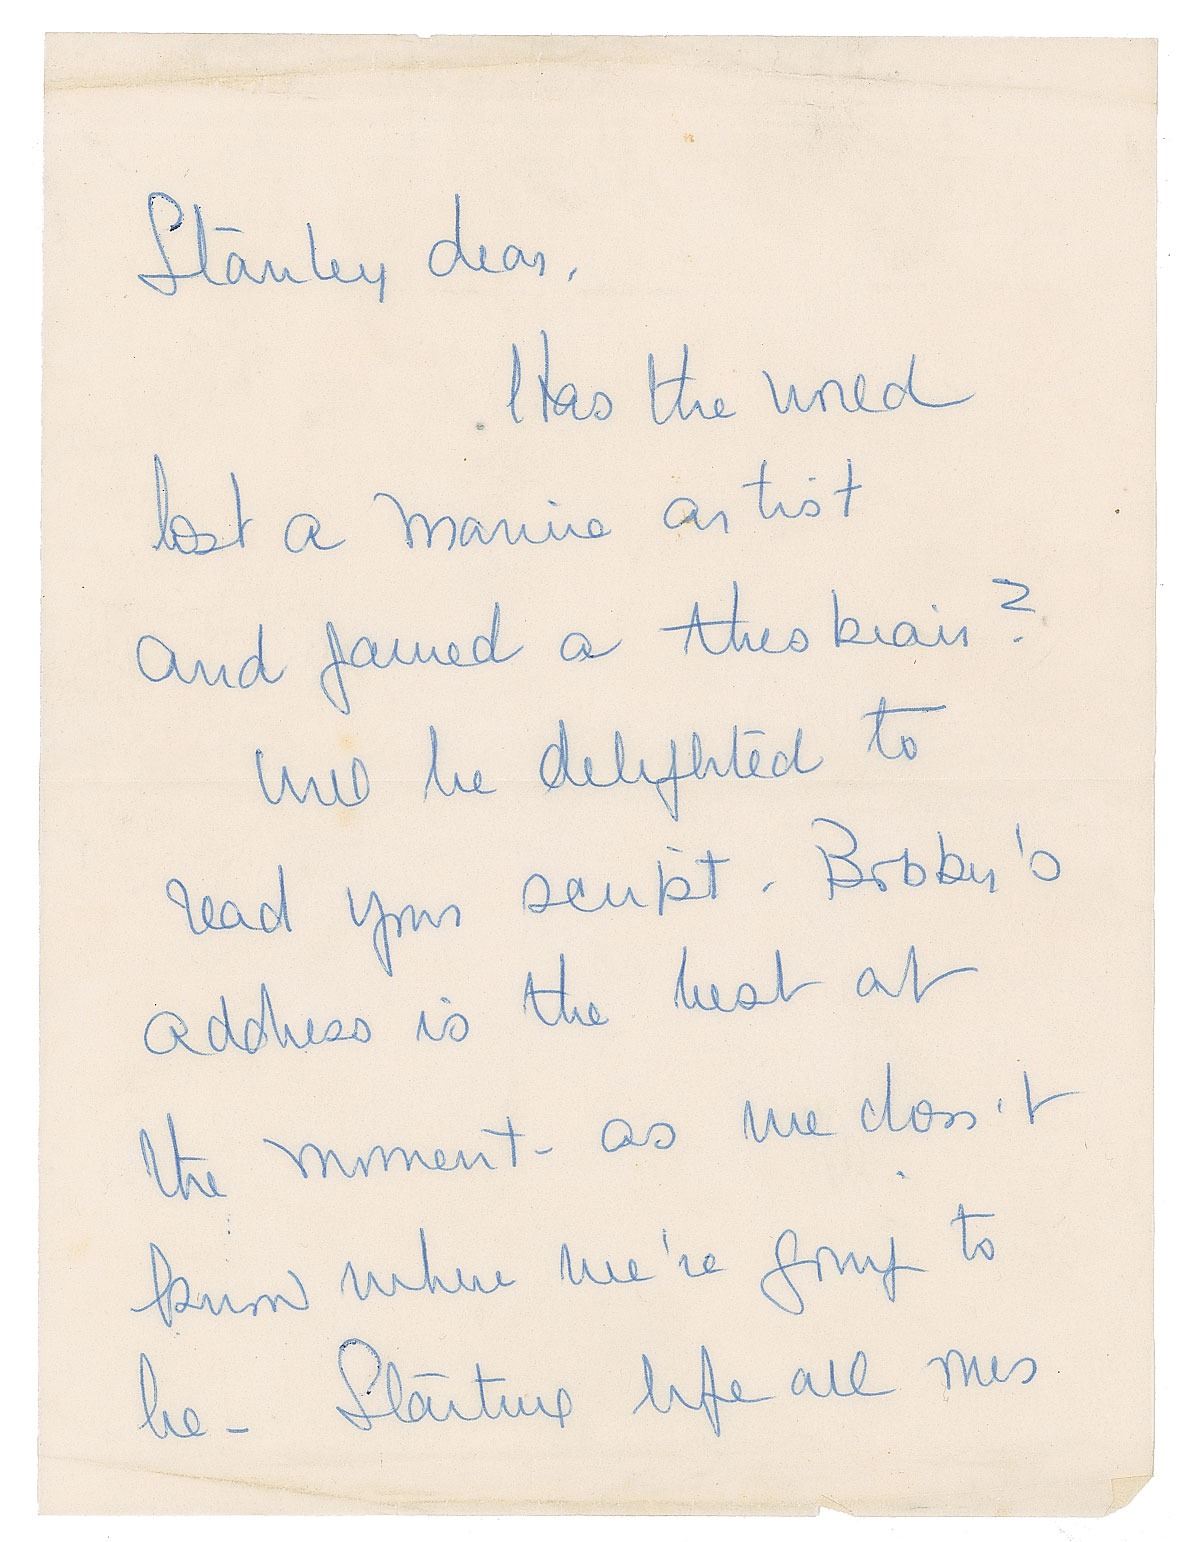 Stanley dear,
Has the world
lost a marine artist
and gained a thespian?
Will be delighted to
read your script. Bobby's
address is the best at
the moment - as we don't
know where we're going to
be - Starting life all over